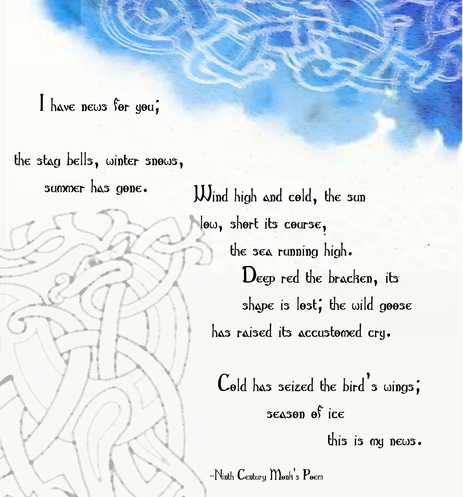 I have news for you;
the stag bells, winter snows,
summer has gone.
Wind high and cold, the sun
low, short its course,
the sea running high.
Deep red the bracken, its
shape is lost; the wild goose
has raised its accustomed cry.
Cold has seized the bird's wings;
season of ice
this is my news.
~Ninth Century Monk's Poem